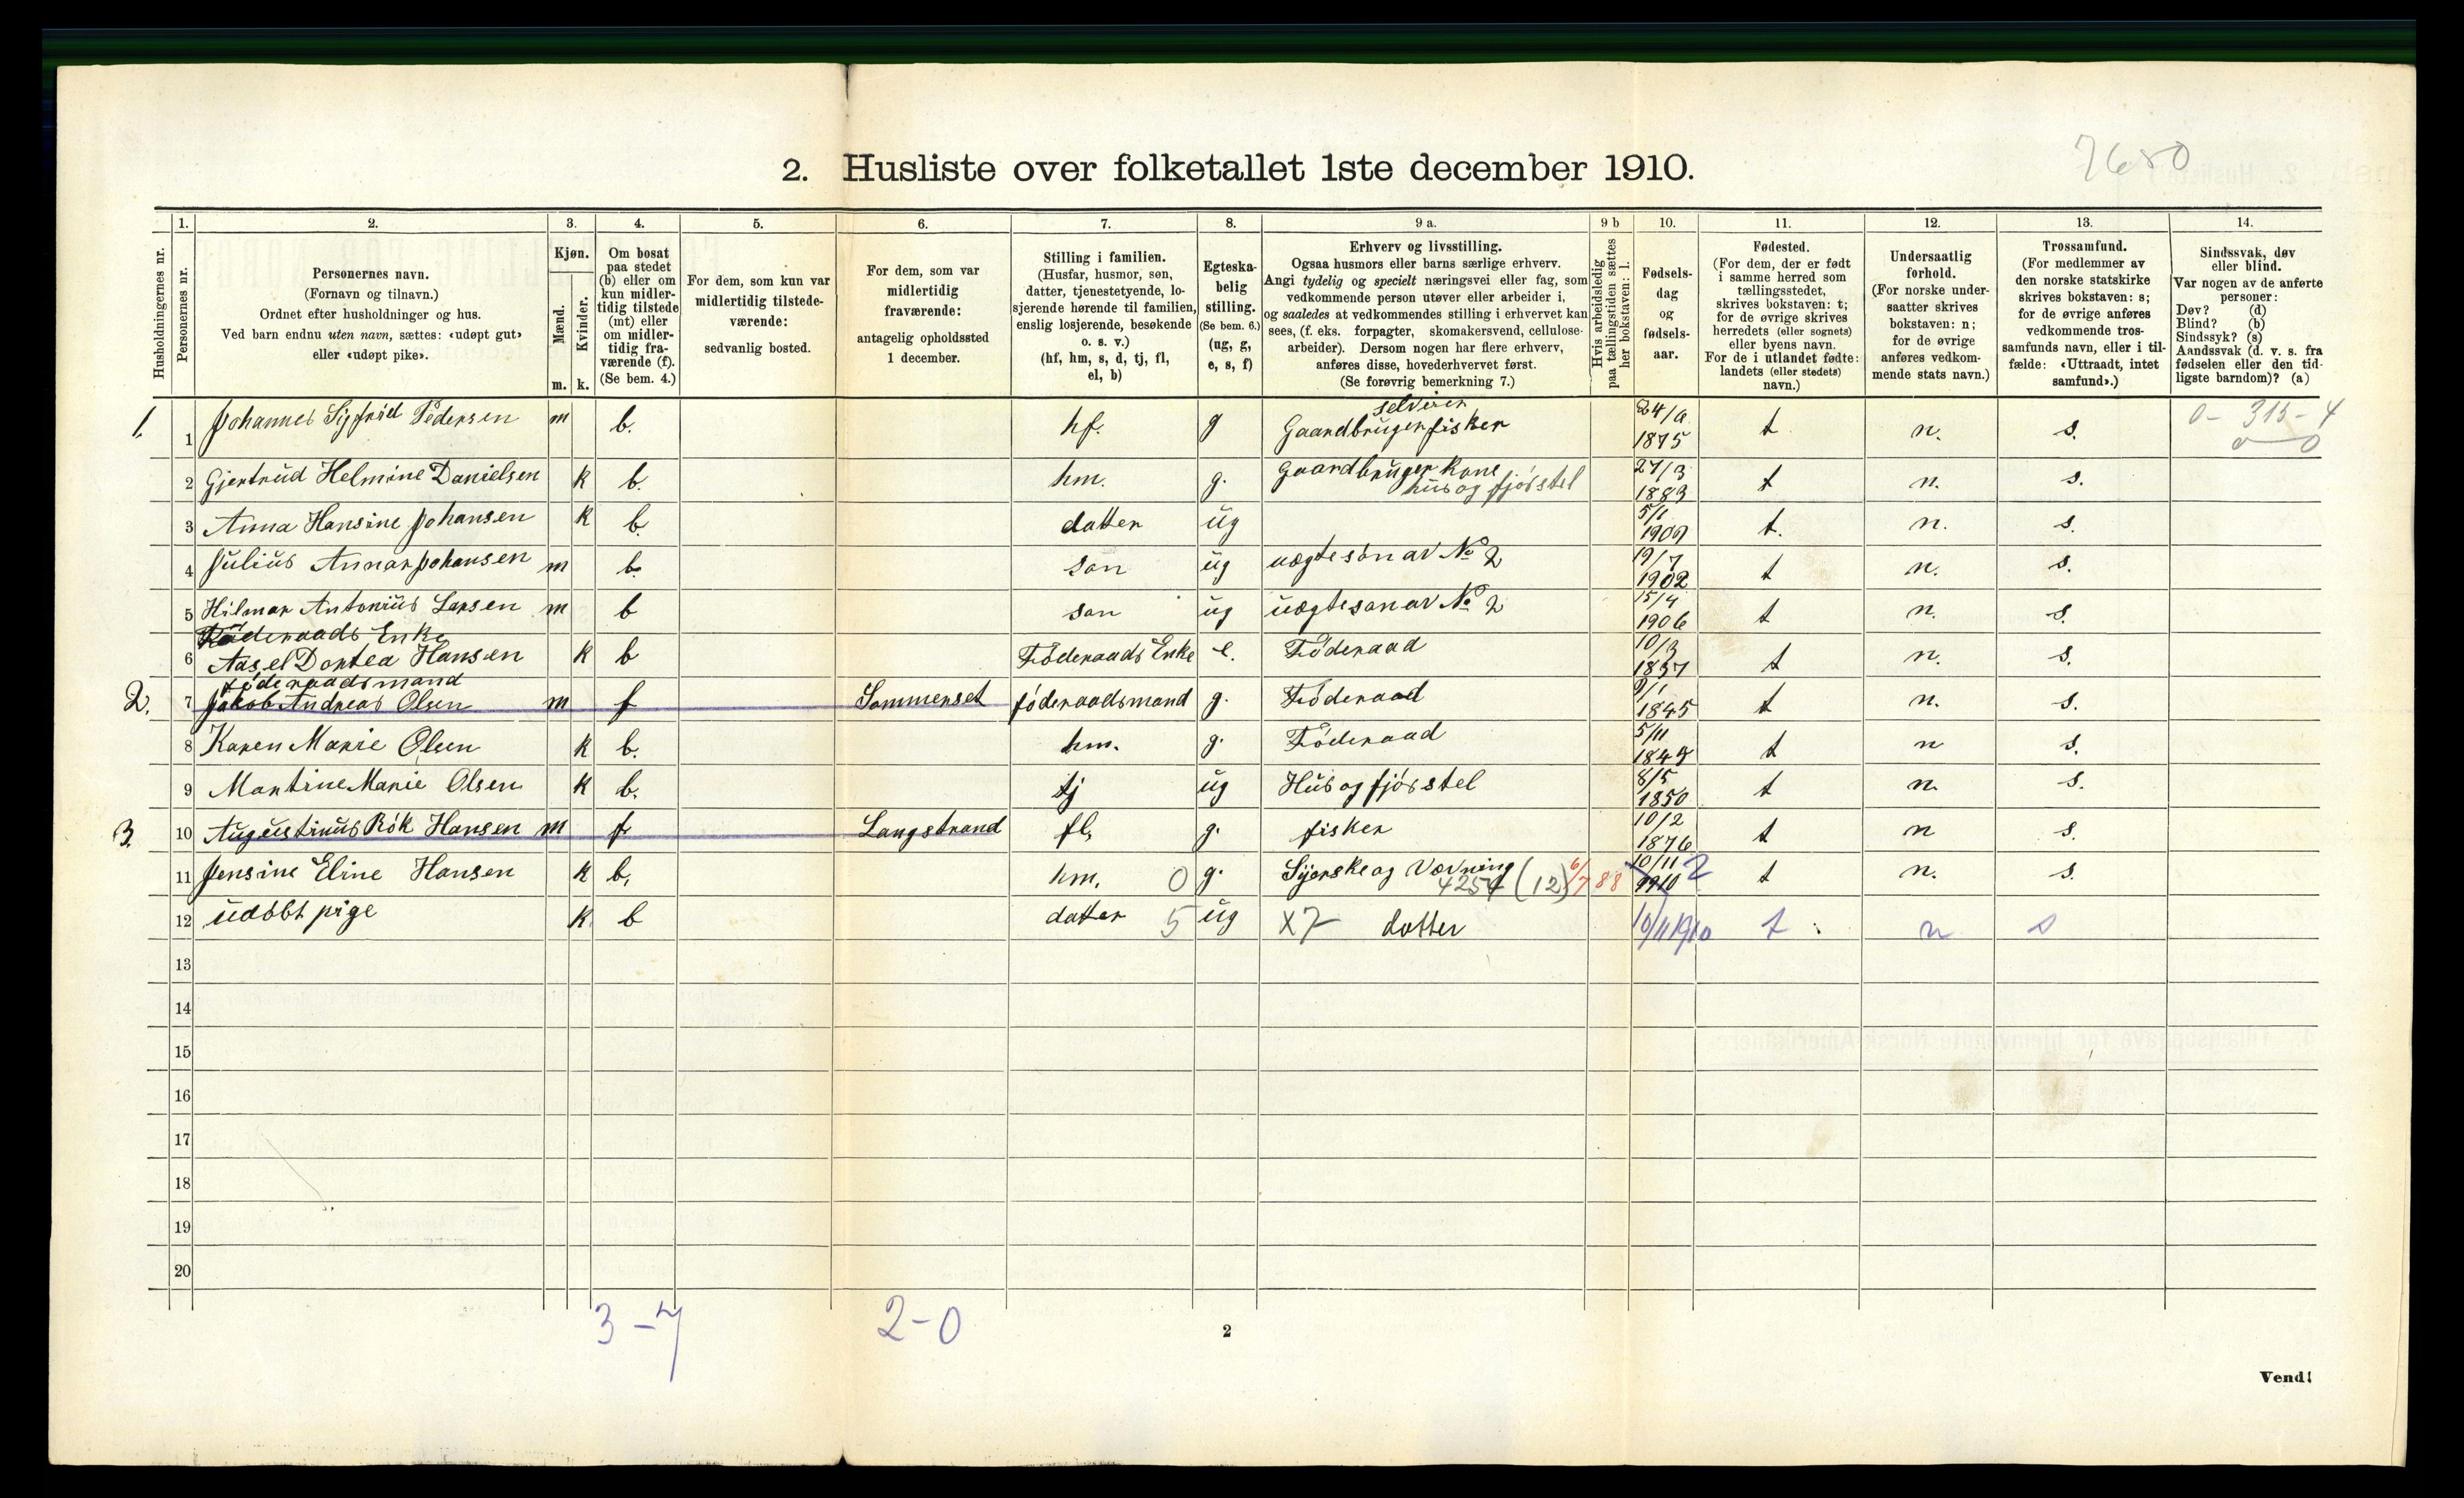 7680
2. Husliste over folketallet 1ste december 1910.
Husholdningernes nr.
1. Personernes nr.
2. Personernes navn.
(Fornavn og tilnavn.)
Ordnet efter husholdninger og hus.
Ved barn endnu uten navn, sættes: «udøpt gut»
eller «udøpt pike».
3. Kjøn.
Mænd. m.
Kvinder. k.
4. Om bosat
paa stedet
(b) eller om
kun midler-
tidig tilstede
(mt) eller
om midler-
tidig fra-
værende (f).
(Se bem. 4.)
5. For dem, som kun var
midlertidig tilstede-
værende:
sedvanlig bosted.
6. For dem, som var
midlertidig
fraværende:
antagelig opholdssted
1 december.
7. Stilling i familien.
(Husfar, husmor, søn,
datter, tjenestetyende, lo-
sjerende hørende til familien,
enslig losjerende, besøkende
o. s. v.)
(hf, hm, s, d, tj, fl,
el, b)
8. Egteska-
belig
stilling.
(Se bem. 6.)
(ug, g,
e, s, f)
9 a. Erhverv og livsstilling.
Ogsaa husmors eller barns særlige erhverv.
Angi tydelig og specielt næringsvei eller fag, som
vedkommende person utøver eller arbeider i,
og saaledes at vedkommendes stilling i erhvervet kan
sees, (f. eks. forpagter, skomakersvend, cellulose-
arbeider). Dersom nogen har flere erhverv,
anføres disse, hovederhvervet først.
(Se forøvrig bemerkning 7.)
9 b Hvis arbeidsledig
paa tællingstiden sættes
her bokstaven: l.
10. Fødsels-
dag
og
fødsels-
aar.
11. Fødested.
(For dem, der er født
i samme herred som
tællingsstedet,
skrives bokstaven: t;
for de øvrige skrives
herredets (eller sognets)
eller byens navn.
For de i utlandet fødte:
landets (eller stedets)
navn.)
12. Undersaatlig
førhold.
(For norske under-
saatter skrives
bokstaven: n;
for de øvrige
anføres vedkom-
mende stats navn.)
13. Trossamfund.
(For medlemmer av
den norske statskirke
skrives bokstaven: s;
for de øvrige anføres
vedkommende tros-
samfunds navn, eller i til-
fælde: «Uttraadt, intet
samfund».)
14. Sindssvak, døv
eller blind.
Var nogen av de anførte
personer:
Døv? (d)
Blind? (b)
Sindssyk? (s)
Aandssvak (d. v. s. fra
fødselen eller den tid-
ligste barndom)? (a)
selveier
1. 1 Johannes Sigfrid Pedersen m b. hf. g Gaardbruger fisker 1875 t n. s. 0- 315-4
0 0
2 Gjertrud Helmine Danielsen k b. hm. g. Gaardbruger Kone hus og fjøsstel 27/3 1883 t n. s.
3 Anna Hansine Johansen k b. datter ug 5/1 1909 t. n. s.
4 Julius Annar Johansen m b. søn ug uægte søn av No 2 19/7 1902 t n. s.
5 Hilmar Antonius Larsen m b søn ug uægte søn av No 2 15/4 1906 t n. s.
Föderaads Enke
6 Aasel Dortea Hansen k b Föderaads Enke e. Föderaad 10/3 1837 t n. s.
föderaadsmand
2. 7 Jakob Andreas Olsen m f Sommerset föderaadsmand g. Föderaad 9/1 1845 t n. s.
8 Karen Marie Olsen k b. hm. g. Föderaad 5/11 t n s.
9 Martine Marie Olsen k b. tj ug Hus og fjøsstel 8/5 1850 t n. s.
3. 10 Augustinus Rök Hansen m f Langstrand fl, g. fisker 10/2 1876 t n s.
11 Jensine Eline Hansen k b, hm. 0 g. Syerske og Vævning 4254 (12) 6/7 88 10/11 1910 2 t n. s.
12 udøbt pige k. b datter 5 ug X7 datter 10/11 1910 t : n s
13
14
15
16
17
18
19
20
3-7 2-0
2
Vend!